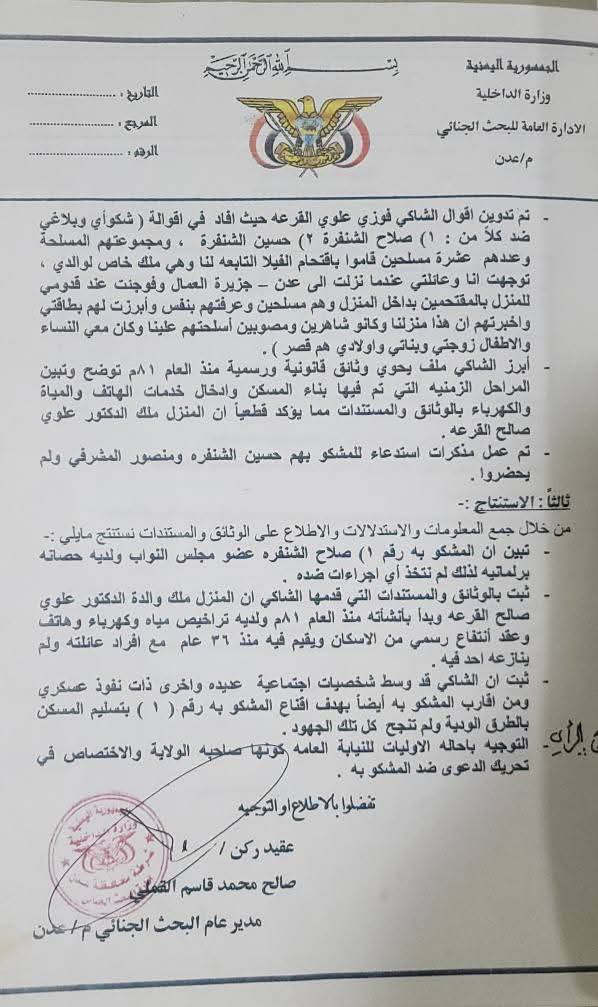 بسم الله الرحمن الرحيم
الجمهورية اليمنية
وزارة الداخلية
الادارة العامة للبحث الجنائي
م/عدن
التاريخ : ........................
المرجع : ........................
الرقم : ........................
- تم تدوين اقوال الشاكي فوزي علوي القرعه حيث افاد في اقوالة ( شكوأي وبلاغي
ضد كلاً من : ١) صلاح الشنفرة ٢) حسين الشنفرة ، ومجموعتهم المسلحة
وعددهم عشرة مسلحين قاموا بأقتحام الفيلا التابعه لنا وهي ملك خاص لوالدي ،
توجهت انا وعائلتي عندما نزلت الى عدن – جزيرة العمال وفوجئت عند قدومي
للمنزل بالمقتحمين بداخل المنزل وهم مسلحين وعرفتهم بنفس وأبرزت لهم بطاقتي
واخبرتهم ان هذا منزلنا وكانو شاهرين ومصوبين أسلحتهم علينا وكان معي النساء
والاطفال زوجتي وبناتي واولادي هم قصر ) .
- أبرز الشاكي ملف يحوي وثائق قانونية ورسمية منذ العام ٨١م توضح وتبين
المراحل الزمنيه التي تم فيها بناء المسكن وادخال خدمات الهاتف والمياة
والكهرباء بالوثائق والمستندات مما يؤكد قطعياً ان المنزل ملك الدكتور علوي
صالح القرعه .
- تم عمل مذكرات استدعاء للمشكو بهم حسين الشنفره ومنصور المشرفي ولم
يحضروا .
ثالثاً : الاستنتاج :-
من خلال جمع المعلومات والاستدلالات والاطلاع على الوثائق والمستندات نستنتج مايلي :-
- تبين ان المشكو به رقم ١) صلاح الشنفره عضو مجلس النواب ولديه حصانه
برلمانيه لذلك لم نتخذ أي اجراءات ضده .
- ثبت بالوثائق والمستندات التي قدمها الشاكي ان المنزل ملك والدة الدكتور علوي
صالح القرعه وبدأ بأنشأته منذ العام ٨١م ولديه تراخيص مياه وكهرباء وهاتف
وعقد أنتفاع رسمي من الاسكان ويقيم فيه منذ ٣٦ عام مع افراد عائلته ولم
ينازعه احد فيه .
- ثبت ان الشاكي قد وسط شخصيات اجتماعية عديده واخرى ذات نفوذ عسكري
ومن اقارب المشكو به أيضاً بهدف اقناع المشكو به رقم ( ١ ) بتسليم المسكن
بالطرق الودية ولم تنجح كل تلك الجهود .
- التوجيه بأحاله الاوليات للنيابة العامه كونها صاحبه الولاية والاختصاص في
تحريك الدعوى ضد المشكو به .
تفضلوا بالاطلاع او التوجيه
عقيد ركن /
صالح محمد قاسم القملي
مدير عام البحث الجنائي م/عدن